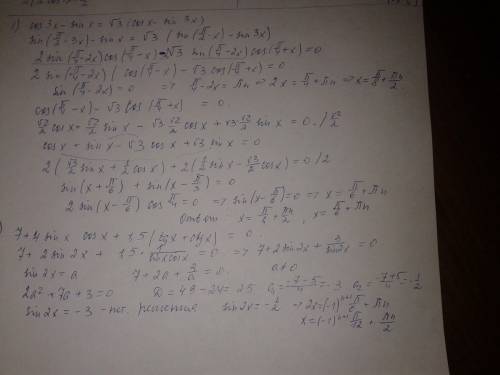 1) cos 3x - sin x = √3 (cos x - sin 3x)
sin(π/2 - 3x) - sin x = √3 (sin(π/2 - x) - sin 3x)
2 sin(π/4 - 2x) cos(π/4 - x) - 2√3 sin(π/4 - 2x) cos(π/4 + x) = 0
2 sin(π/4 - 2x) (cos(π/4 - x) - √3 cos(π/4 + x)) = 0
sin(π/4 - 2x) = 0 => π/4 - 2x = πn => 2x = π/4 + πn => x = π/8 + πn/2
cos(π/4 - x) - √3 cos(π/4 + x) = 0.
√2/2 cos x + √2/2 sin x - √3·√2/2 cos x + √3·√2/2 sin x = 0. /√2/2
cos x + sin x - √3 cos x + √3 sin x = 0
2(√3/2 sin x + 1/2 cos x) + 2(1/2 sin x - √3/2 cos x) = 0 /2
sin(x + π/6) + sin(x - π/3) = 0
2 sin(x - π/6) cos π/4 = 0 => sin(x - π/6) = 0 => x = π/6 + πn
ответ: x = π/8 + πn/2, x = π/6 + πn
7 + 4 sin x cos x + 1,5 (tg x + ctg x) = 0.
7 + 2 sin 2x + 1,5 · 1/sin x cos x = 0. => 7 + 2 sin 2x + 3/sin 2x = 0
sin 2x = a 7 + 2a + 3/a = 0. a ≠ 0
2a² + 7a + 3 = 0 D = 49 - 24 = 25 a₁ = -7-5/4 = -3 a₂ = -7+5/4 = -1/2
sin 2x = -3 - нет решения sin 2x = -1/2 => 2x = (-1)ⁿ⁺¹ π/6 + πn
x = (-1)ⁿ⁺¹ π/12 + πn/2